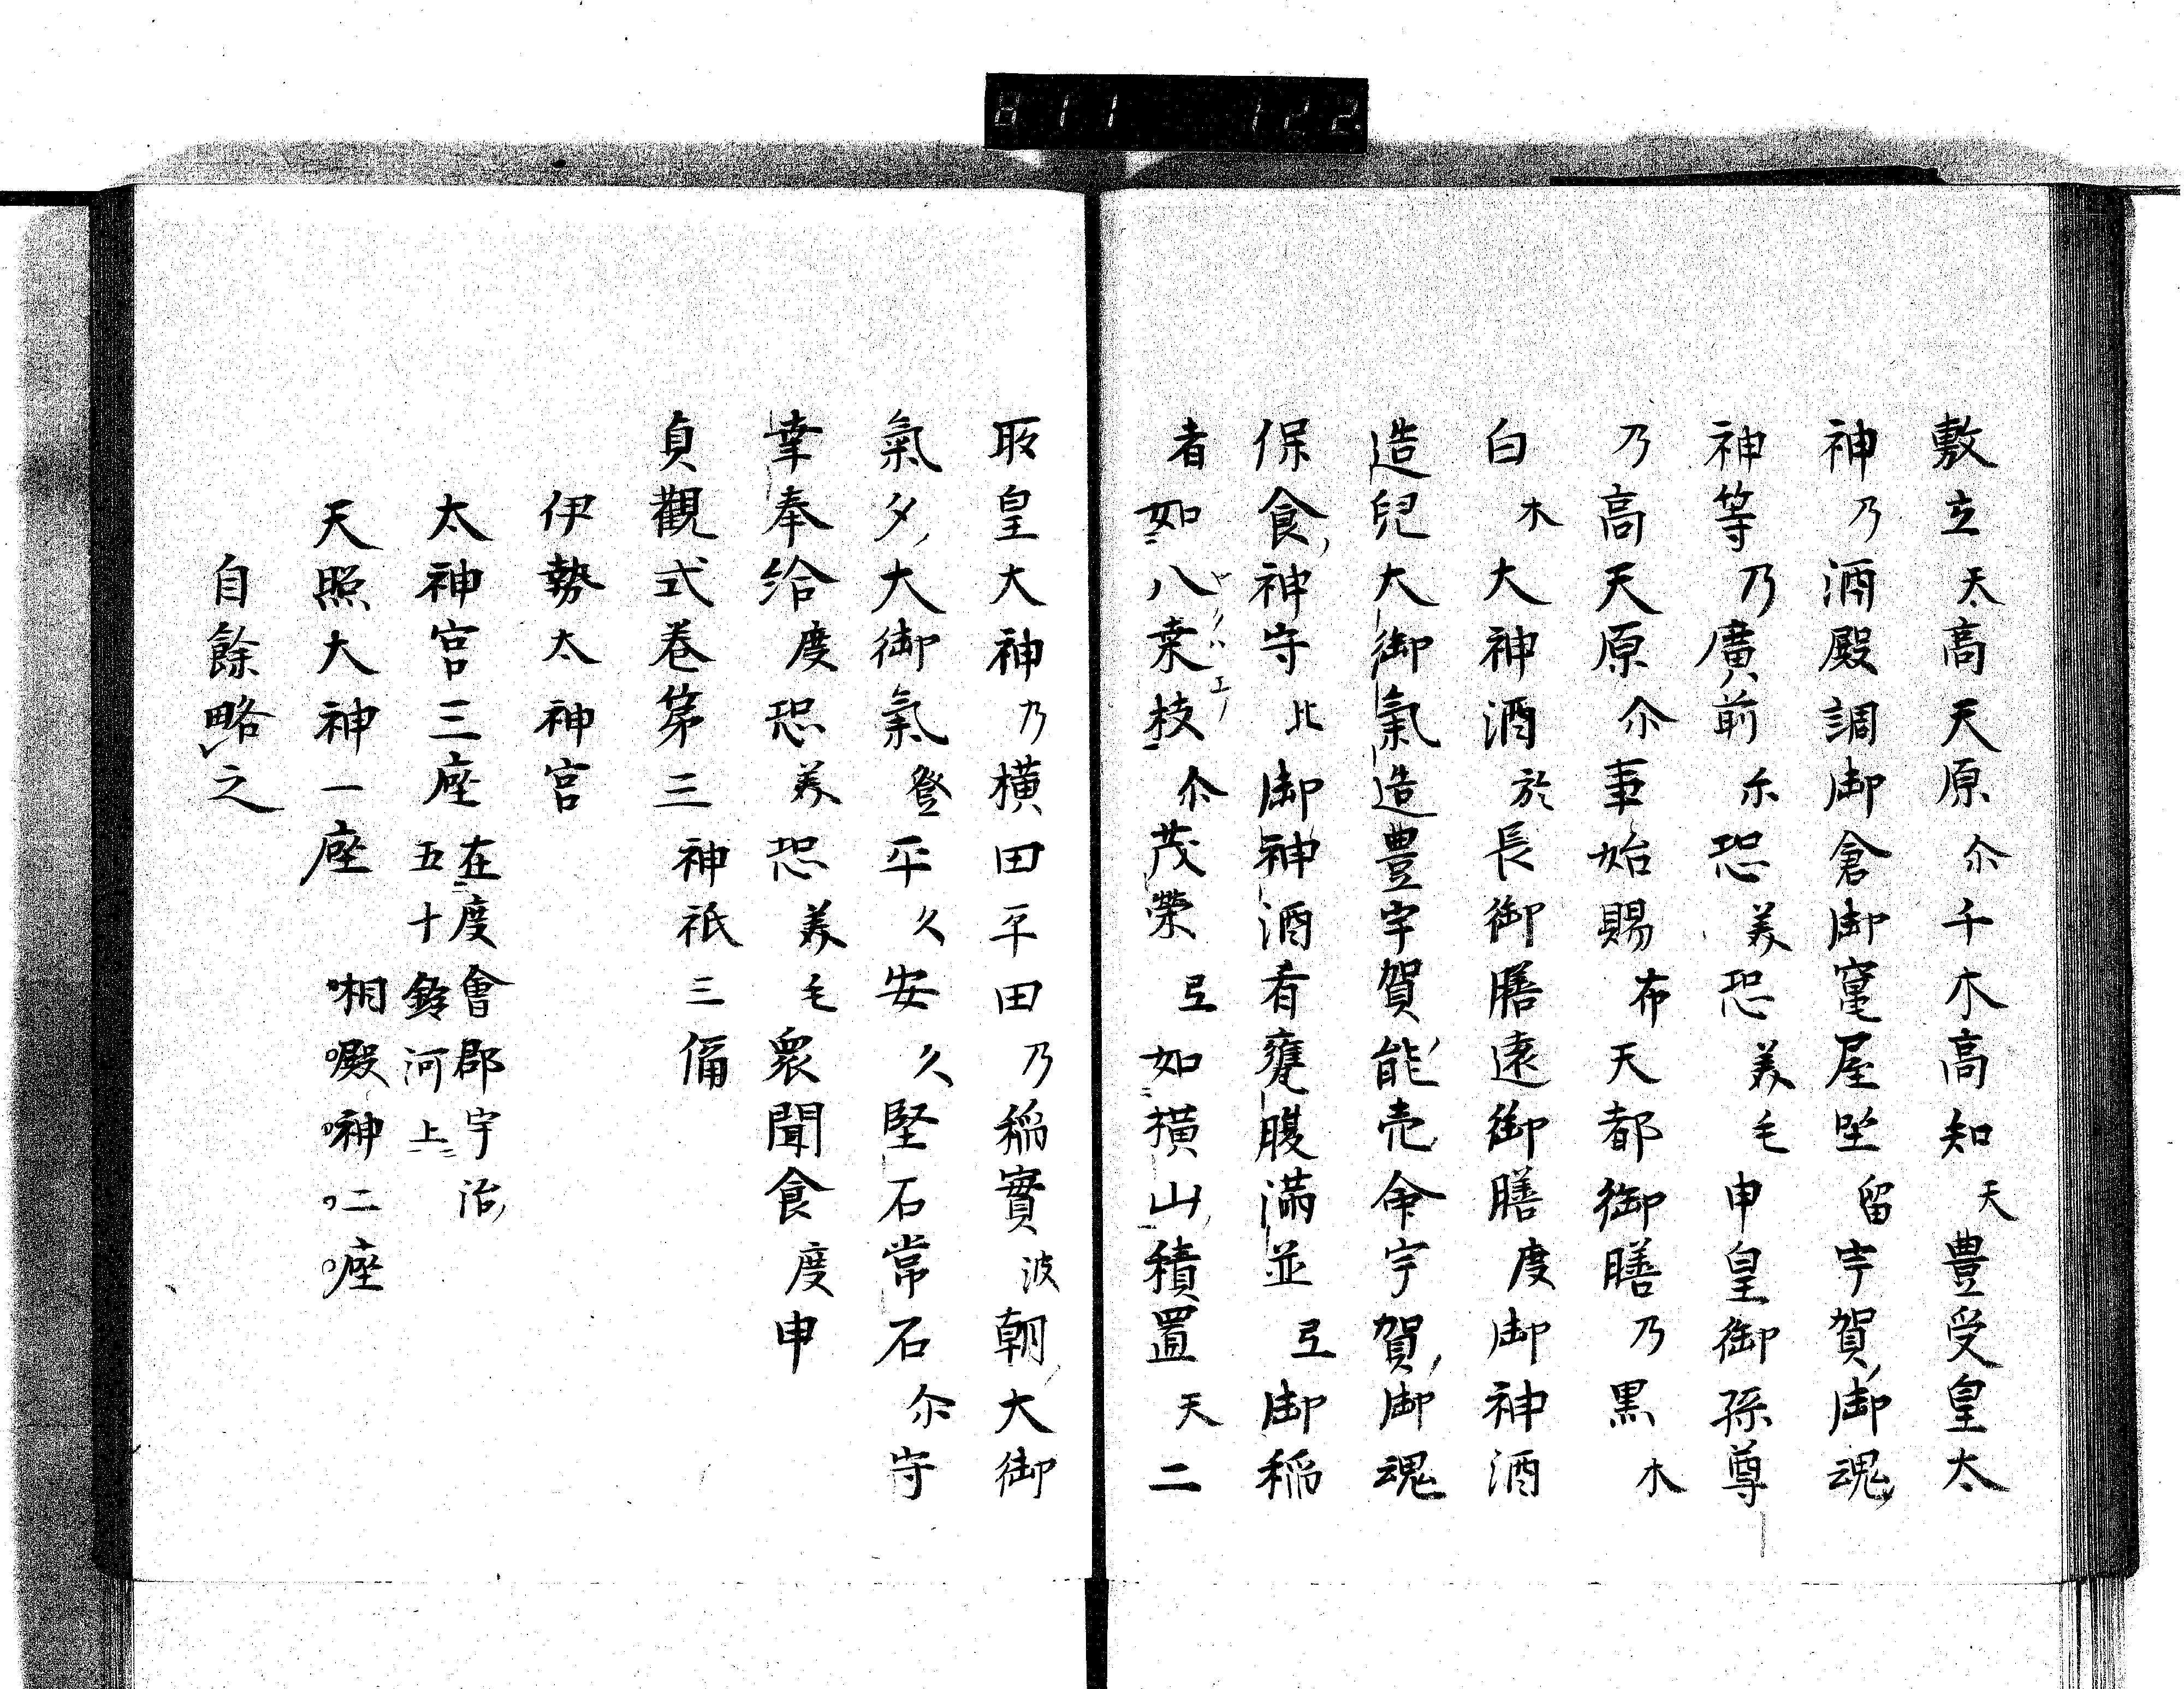 敷立天高天原尒千木高知天豊受皇太
神乃酒殿調御倉御竃屋坐留宇賀御魂
神等乃廣前尒恐美恐美毛申皇御孫尊
乃高天原尒事始賜布天都御膳乃黒木
白木大神酒於長御膳遠御膳度御神酒
造兒大御氣造豊宇賀能売命宇賀御魂
保食神守比御神酒者甕腹満並弖御稲
者如八桒枝尒茂榮弖如横山積置天二
取皇大神乃横田平田乃稲實波朝大御
氣夕大御氣登平久安久堅石常石尒守
幸奉給度恐美恐美毛衆聞食度申
貞觀式卷第三神祇三偱
伊勢太神宮
太神宮三座在度會郡宇治
五十鈴河上
天照大神一座 相殿神二座
自餘略之
811 122